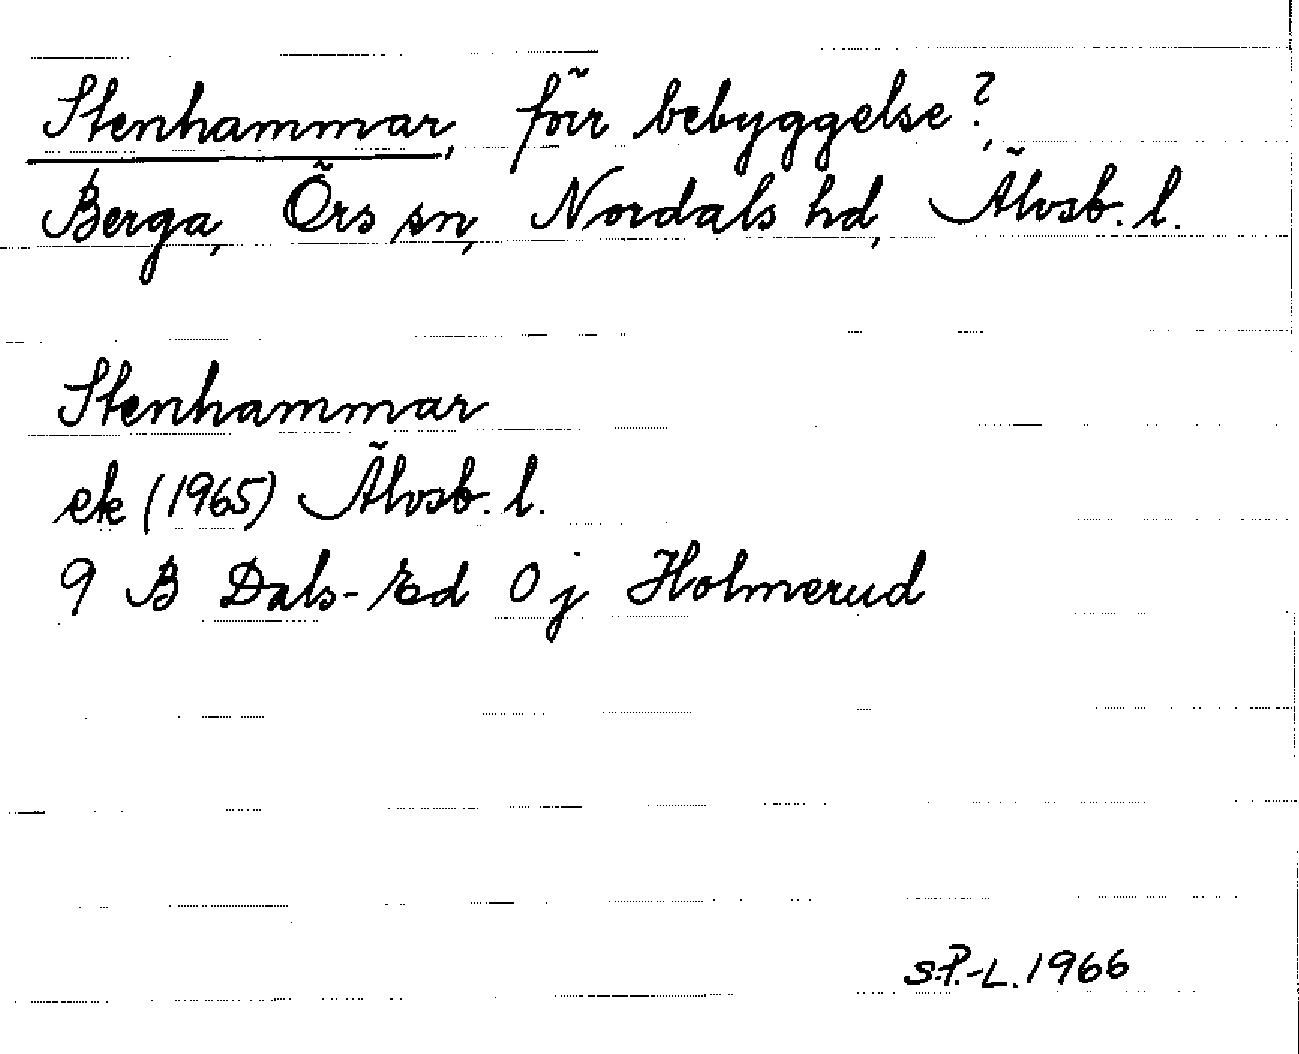 Stenhammar, förr bebyggelse?,
Berga, Örs sn, Nordals hd, Älvsb. l.
Stenhammar
ek (1965) Älvsb. l.
9 B Dals-Ed 0 j Holmerud
S.P.-L. 1966